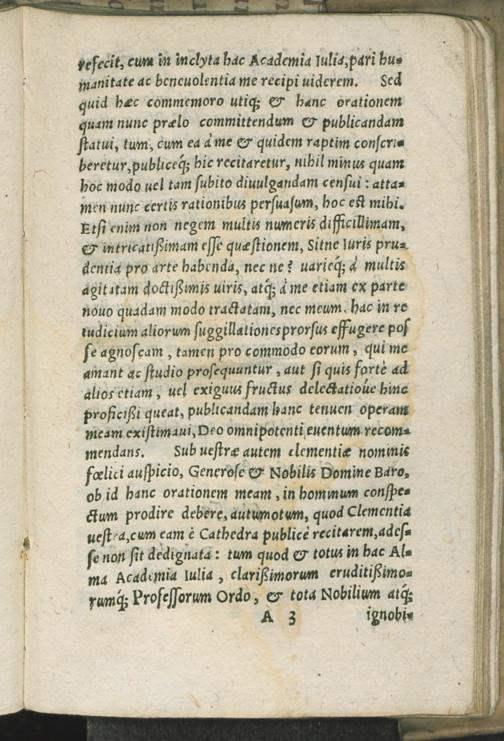 refecit, cum in inclyta hac Academia Iulia, pari hu-
manitate ac beneuolentia me recipi uiderem. Sed
quid hæc commemoro utiq; & hanc orationem
quam nunc prælo committendum & publicandam
statui, tum, cum ea à me & quidem raptim conscri-
beretur, publiceq; hic recitaretur, nihil minus quam
hoc modo uel tam subito diuulgandam censui: atta-
men nunc certis rationibus persuasum, hoc est mihi.
Etsi enim non negem multis numeris difficillimam,
& intricatißimam esse quæstionem, Sitne Iuris pru-
dentia pro arte habenda, nec ne? varieq; à multis
agitatam doctißimis uiris, atq; à me etiam ex parte
nouo quadam modo tractatam, nec meum hac in re
iudicium aliorum suggillationes prorsus effugere pos
se agnoscam, tamen pro commodo eorum, qui me
amant ac studio prosequuntur, aut si quis fortè ad
alios etiam, uel exiguus fructus delectatioúe hinc
proficisci queat, publicandam hanc tenuem operam
meam existimaui, Deo omnipotenti euentum recom-
mendans. Sub uestræ autem clementiæ nominis
fœlici auspicio, Generose & Nobilis Domine Baro,
ob id hanc orationem meam, in hominum conspe-
ctum prodire debere, autumotum, quod Clementia
uestra, cum eam è Cathedra publicè recitarem, ades-
se non sit dedignata: tum quod & totus in hac Al-
ma Academia Iulia, clarißimorum eruditißimo-
rumq; Professorum Ordo, & tota Nobilium atq;
A 3 ignobi-